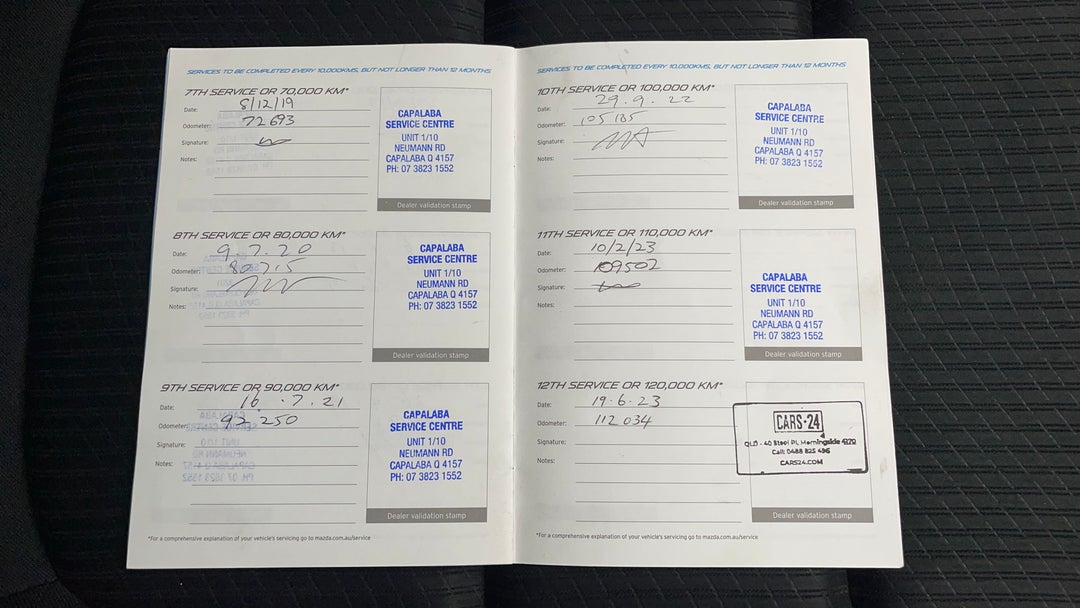 SERVICES TO BE COMPLETED EVERY 10,000KMS, BUT NOT LONGER THAN 12 MONTHS
7TH SERVICE OR 70,000 KM*
Date: 8/12/19
Odometer: 72693
Signature:
Notes:
CAPALABA
SERVICE CENTRE
UNIT 1/10
NEUMANN RD
CAPALABA Q 4157
PH: 07 3823 1552
Dealer validation stamp
8TH SERVICE OR 80,000 KM*
Date: 9.7.20
Odometer: 80715
Signature:
Notes:
CAPALABA
SERVICE CENTRE
UNIT 1/10
NEUMANN RD
CAPALABA Q 4157
PH: 07 3823 1552
Dealer validation stamp
9TH SERVICE OR 90,000 KM*
Date: 16.7.21
Odometer: 92250
Signature:
Notes:
CAPALABA
SERVICE CENTRE
UNIT 1/10
NEUMANN RD
CAPALABA Q 4157
PH: 07 3823 1552
Dealer validation stamp
*For a comprehensive explanation of your vehicle's servicing go to mazda.com.au/service
SERVICES TO BE COMPLETED EVERY 10,000KMS, BUT NOT LONGER THAN 12 MONTHS
10TH SERVICE OR 100,000 KM*
Date: 29.9.22
Odometer: 105185
Signature:
Notes:
CAPALABA
SERVICE CENTRE
UNIT 1/10
NEUMANN RD
CAPALABA Q 4157
PH: 07 3823 1552
Dealer validation stamp
11TH SERVICE OR 110,000 KM*
Date: 10/2/23
Odometer: 109502
Signature:
Notes:
CAPALABA
SERVICE CENTRE
UNIT 1/10
NEUMANN RD
CAPALABA Q 4157
PH: 07 3823 1552
Dealer validation stamp
12TH SERVICE OR 120,000 KM*
Date: 19.6.23
Odometer: 112034
Signature:
Notes:
CARS-24
QLD - 40 Steel PL Morningside 4170
Call: 0488 825 496
CARS24.COM
Dealer validation stamp
*For a comprehensive explanation of your vehicle's servicing go to mazda.com.au/service